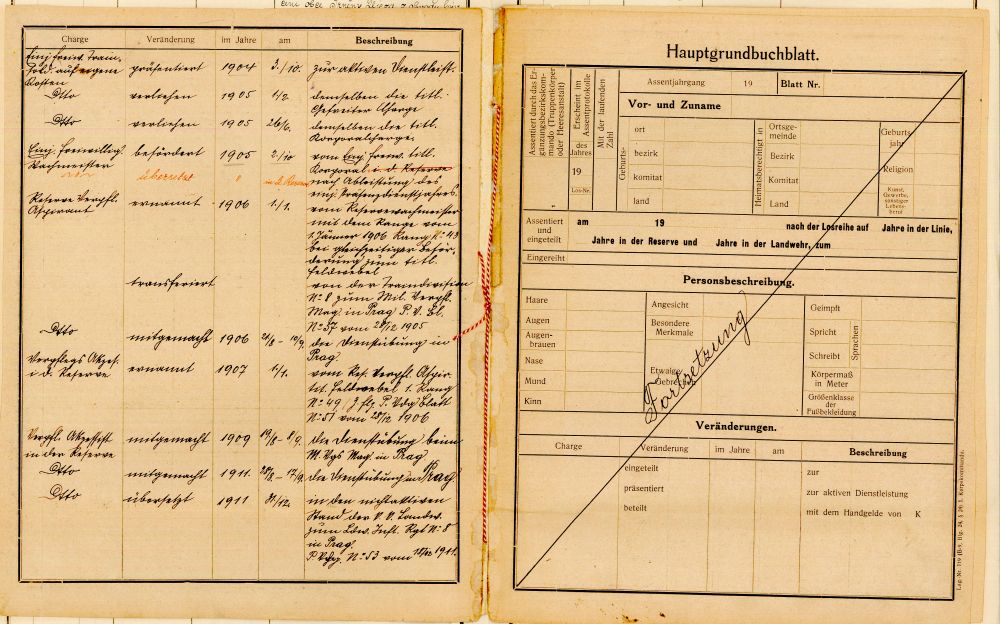 Charge Veränderung im Jahre am Beschreibung
Einj. freiw. Train.
sold. auf eigene
Kosten
präsentiert 1904 3./10. zur aktiven Dienstleist.
Dtto verliehen 1905 1/2. demselben die titl.
Gefreiter Charge
Dtto verliehen 1905 26/6. demselben die titl.
Korporalcharge.
Einj. Freiwillig. befördert 1905 2/10 vom Einj. Freiw. titl.
Wachmeister
Korporal i. d. Reserve
übersetzt
nach Ableistung des
einj. Präsenzdienstjahres
Reserve Verpfl. ernannt 1906 1/1. vom Reservewachmeister
Aspirant
mit dem Range vom
1. Jänner 1906 Rang No. 43
bei gleichzeitiger Beför-
derung zum titl.
Feldwebel
transferiert von der Traindivision
No. 8 zum Mil. Verpfl.
Mag. in Prag P. V. Bl.
No. 57 vom 28/12 1905
Dtto mitgemacht 1906 die Dienstübung in
Prag
Verpflegs Akzes. ernannt 1907 1/1. vom Res. Verpfl. Aspir.
i. d. Reserve
tit. Feldwebel 1. Rang
No. 49
No. 51 vom 28/12 1906
Verpfl. Akzessist mitgemacht 1909 19/8 – 8/9. die Dienstübung beim
in der Reserve
M. Vgs Mag. in Prag
Dtto mitgemacht 1911. die Dienstübung in Prag
Dtto übersetzt 1911 31/12. in den nichtaktiven
Stand der k. k. Landw.
zum Ldw. Inft. Rgt No. 8
in Prag
No. 53 vom 1911.
Hauptgrundbuchblatt.
Assentiert durch das Er-
gänzungsbezirkskom-
mando (Truppenkörper
oder Heeresanstalt)
Erscheint im
Assentprotokolle
des Jahres
19
Los-Nr.
Mit der laufenden
Zahl
Assentjahrgang 19 Blatt Nr.
Vor- und Zuname
Geburts-
ort
bezirk
komitat
land
Heimatsberechtigt in
Ortsge-
meinde
Bezirk
Komitat
Land
Geburts-
jahr
Religion
Kunst,
Gewerbe,
sonstiger
Lebens-
beruf
Assentiert
und
eingeteilt
am 19 nach der Losreihe auf Jahre in der Linie,
Jahre in der Reserve und Jahre in der Landwehr, zum
Eingereiht
Personsbeschreibung.
Haare
Augen
Augen-
brauen
Nase
Mund
Kinn
Angesicht
Besondere
Merkmale
Etwaige
Gebrechen
Geimpft
Spricht
Schreibt
Sprachen
Körpermaß
in Meter
Größenklasse
der
Fußbekleidung
Fortsetzung
Veränderungen.
Charge Veränderung im Jahre am Beschreibung
eingeteilt zur
präsentiert zur aktiven Dienstleistung
beteilt mit dem Handgelde von K